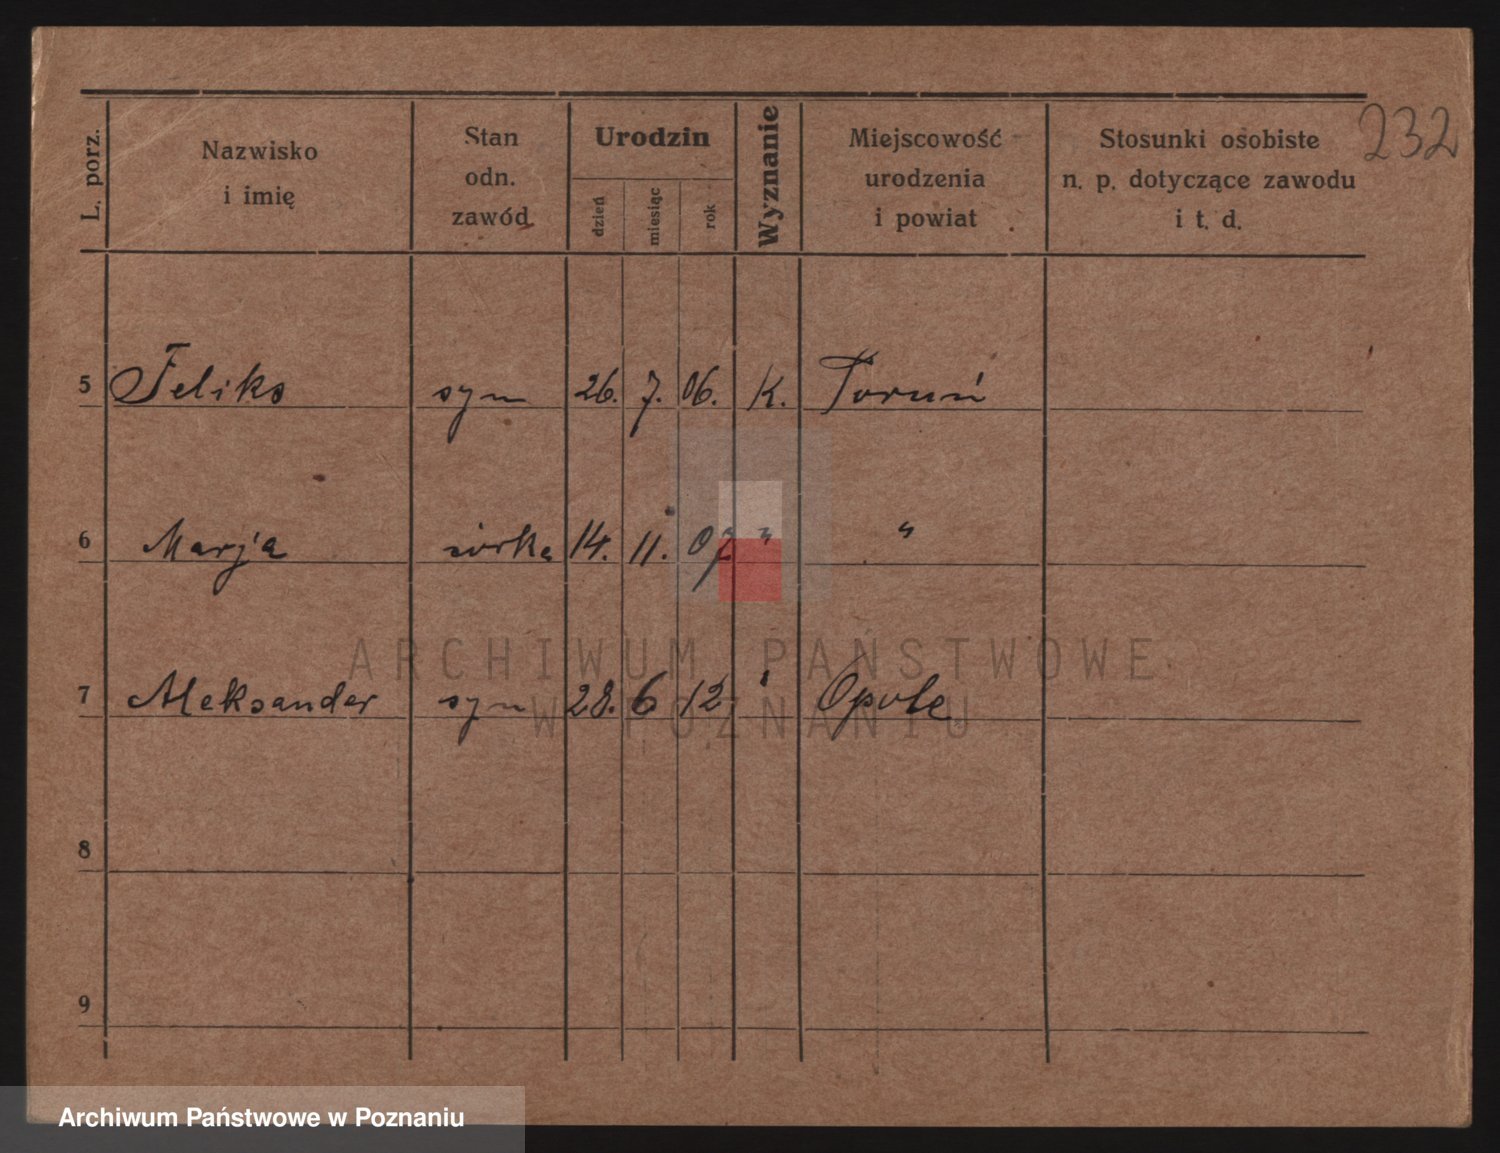 232
L. porz.
Nazwisko
i imię
Stan
odn.
zawód
Urodzin
dzień
miesiąc
rok
Wyznanie
Miejscowość
urodzenia
i powiat
Stosunki osobiste
n. p. dotyczące zawodu
i t. d.
5 Feliks syn 26. 7. 06. K. Toruń
6 Marja córka 14. 11. 07 " "
ARCHIWUM PAŃSTWOWE
7 Aleksander syn 28. 6 12 Opole
W POZNANIU
8
9
Archiwum Państwowe w Poznaniu